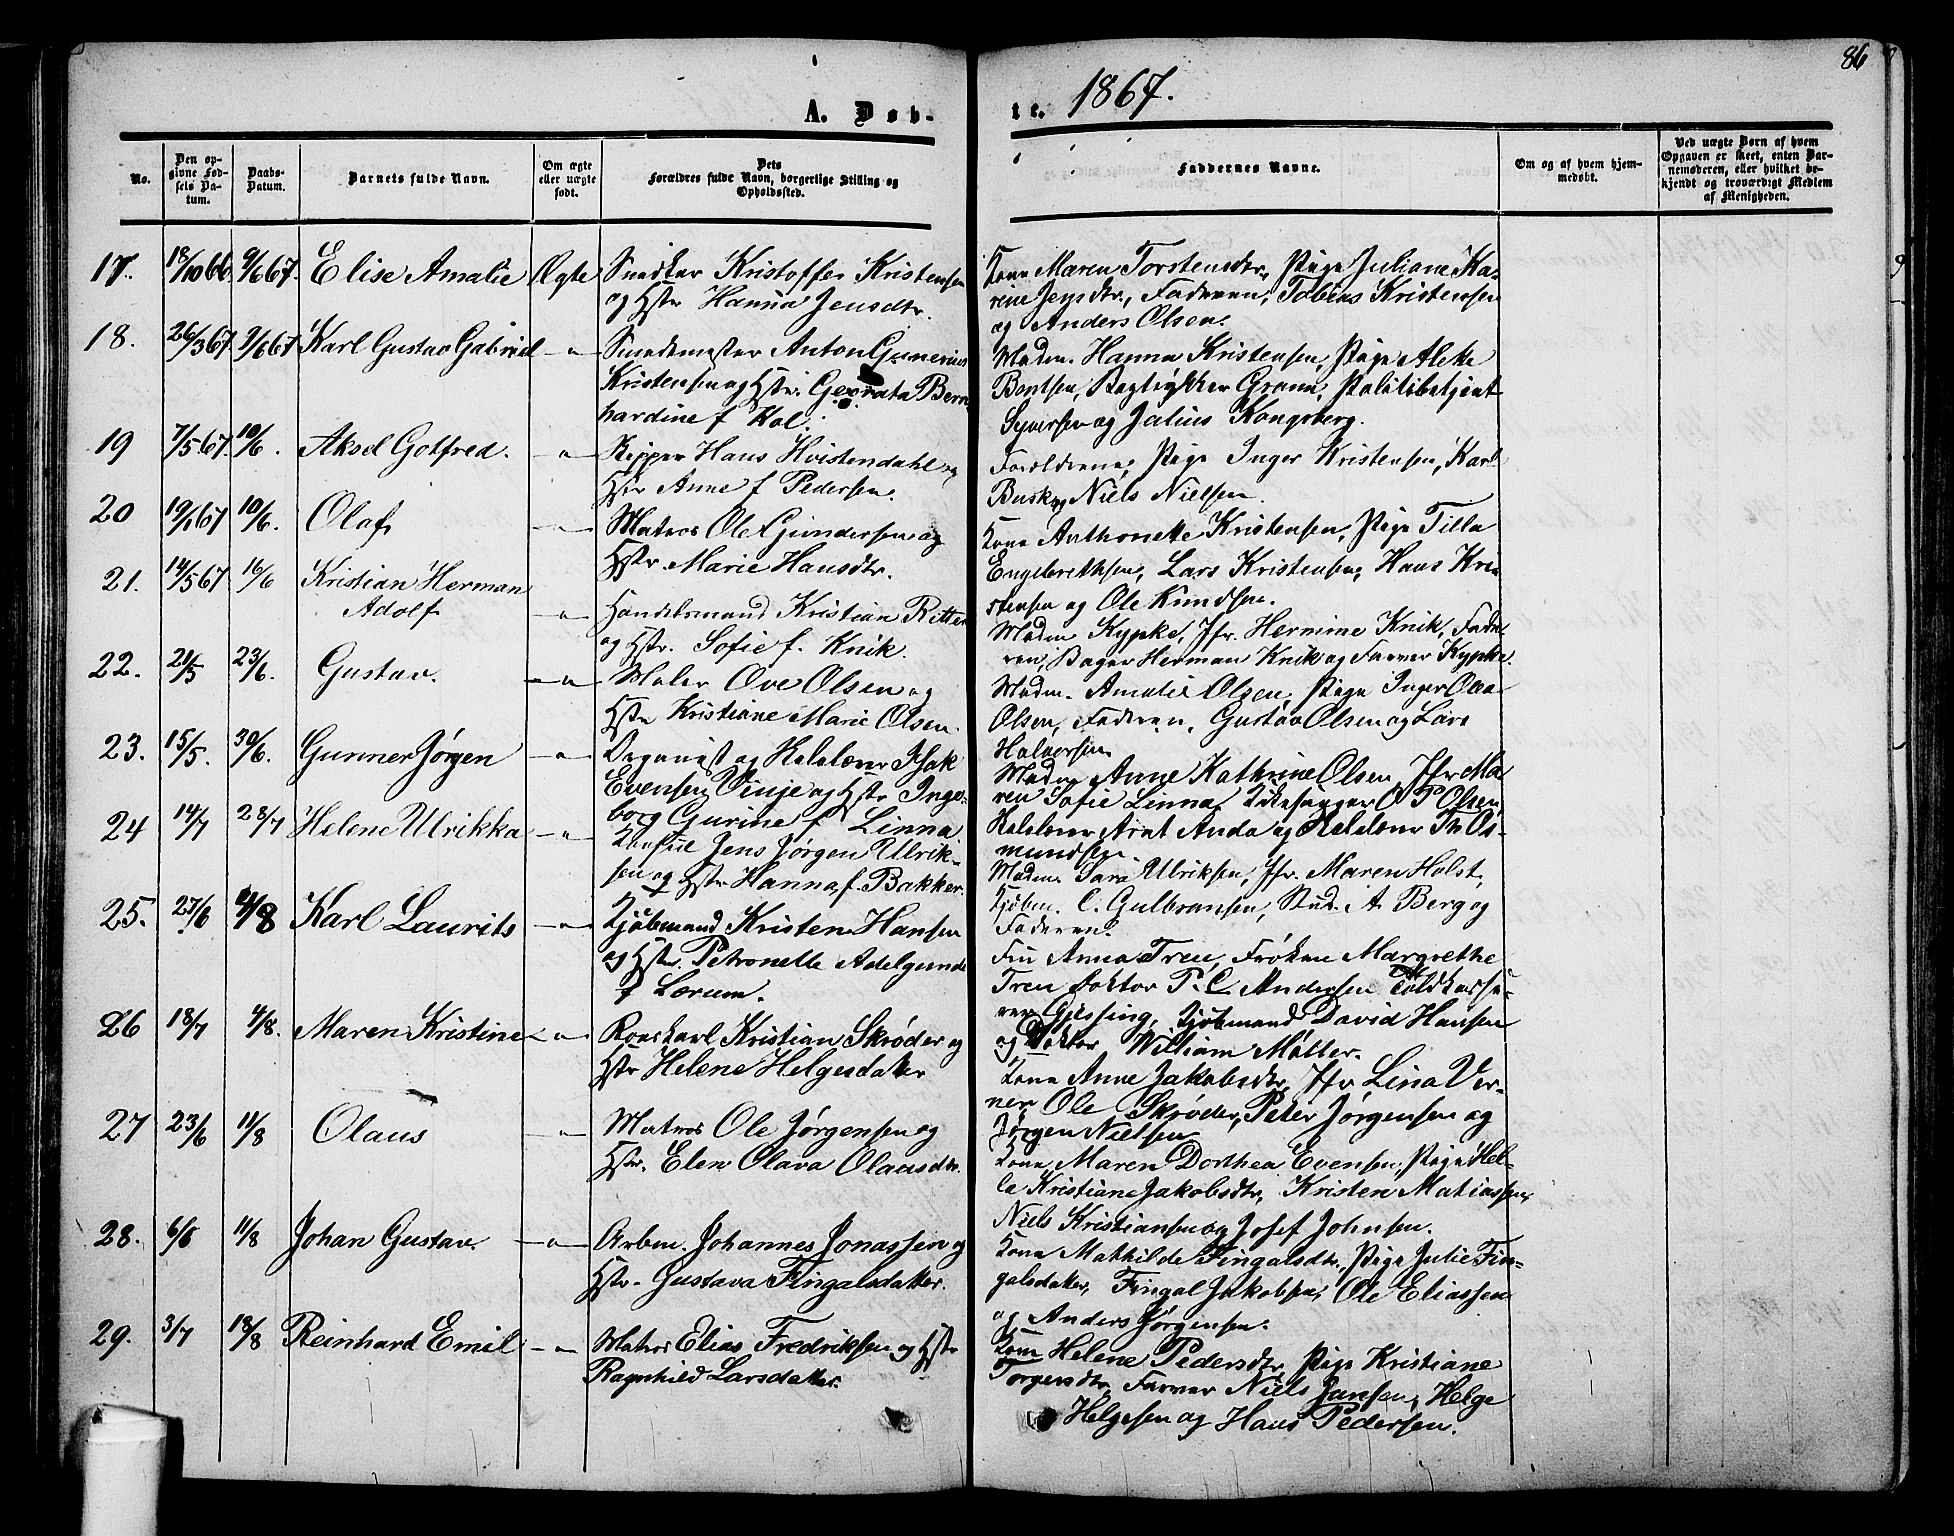 86
A. Døb-
te. 1867.
No.
Den op-
givne Fød-
sels Da-
tum.
Daabs-
Datum.
Barnets fulde Navn.
Om ægte
eller uægte
født.
Dets
Forældres fulde Navn, borgerlige Stilling og
Opholdssted.
Faddernes Navne.
Om og af hvem hjem-
medøbt.
Ved uægte Børn af hvem
Opgaven er skeet, enten Bar-
nemoderen, eller hvilket be-
kjendt og troværdigt Medlem
af Menigheden.
17. 18/10 66 9/6 67. Elise Amalie Ægte Snedker Kristoffer Kristensen
og Hstr Hanna Jensdtr.
Kone Maren Torstensdtr, Pige Juliane Ka-
rine Jensdtr, Faderen, Tobias Kristensen
og Anders Olsen.
18. 26/3 67 9/6 67 Karl Gustav Gabriel -"- Smedemester Anton Gunerius
Kristensen og Hstr. Georata Bern-
hardine f Kol.
Madm. Hanna Kristensen, Pige Alette
Bentsen, Bogtrykker Grann, Politibetjent
Syversen og Julius Kongsberg.
19 7/5 67. 10/6. Aksel Gotfred. -"- Skipper Hans Hvistendahl og
Hstr Anne f Pedersen.
Forældrene, Pige Inger Kristensen, Karl
Busk og Niels Nielsen.
20 19/1 67 10/6. Olaf -"- Matros Ole Gundersen og
Hstr. Marie Hansdtr.
Kone Anthonette Kristensen, Pige Tilla
Engebrektsen, Lars Kristensen, Hans Kri-
stensen og Ole Knudsen.
21. 14/5 67 16/6 Kristian Herman
Adolf -"- Handelsmand Kristian Ritter
og Hstr. Sofie f. Knik.
Madm Kypke, Jfr. Hermine Knik, Fade-
ren, Bager Herman Knik og Farver Kypke.
22. 21/5 23/6. Gustav. -"- Maler Ove Olsen og
Hstr Kristiane Marie Olsen.
Madm. Amalie Olsen, Pige Inger Ova
Olsen, Faderen, Gustav Olsen og Lars
Halversen
23. 15/5. 30/6. Gunner Jørgen -"- Organist og Skolelærer Isak
Evensen Vinje og Hstr Inge-
borg Gurine f Linna
Madm Anne Kathrine Olsen, Jfr Ma-
ren Sofie Linna, Kirkesanger O P Olsen
Skolelærer Arnt Anda og Skolelærer Th. Os-
mundsen.
24 14/7 28/7 Helene Ulrikka -"- Konsul Jens Jørgen Ulrik-
sen og Hstr Hanna f. Bakker.
Madm. Sara Ulriksen, Jfr. Maren Holst,
Kjøbm. C. Gulbransen, Stud. A. Berg og
Faderen.
25. 27/6 4/8 Karl Laurits -"- Kjøbmand Kristen Hansen
og Hstr. Petronelle Adelgunde
f Lorum.
Fru Anna Tren, Frøken Margrethe
Tren Doktor P. C. Andersen Toldkasse-
rer Gjessing, Kjøbmand David Hansen
og Doktor William Møller.
26 18/7 4/8. Maren Kristine -"- Roerskarl Kristian Skrøder og
Hstr Helene Helgesdatter
Kone Anne Jakobsdtr, Jfr Lina Ver-
ner, Ole Skrøder, Peter Jørgensen og
Jørgen Nielsen
27 23/6 11/8 Olaus -"- Matros Ole Jørgensen og
Hstr. Elen Olava Olausdtr.
Kone Maren Dorthea Evensen, Pige Hel-
le Kristiane Jakobsdtr, Kristen Matiassen,
Niels Kristiansen og Josef Johnsen.
28. 6/6 11/8 Johan Gustav. -"- Arbm. Johannes Jonassen og
Hstr. Gustava Fingalsdatter.
Kone Mathilde Fingalsdtr., Pige Julie Fin-
galsdatter, Fingal Jakobsen, Ole Eliassen
og Anders Jørgensen.
29. 3/7 18/8 Reinhard Emil -"- Matros Elias Fredriksen og Hstr
Ragnhild Larsdatter.
Kone Helene Pedersdtr, Pige Kristiane
Torgersdtr, Farver Niels Jansen, Helge
Helgesen og Hans Pedersen.